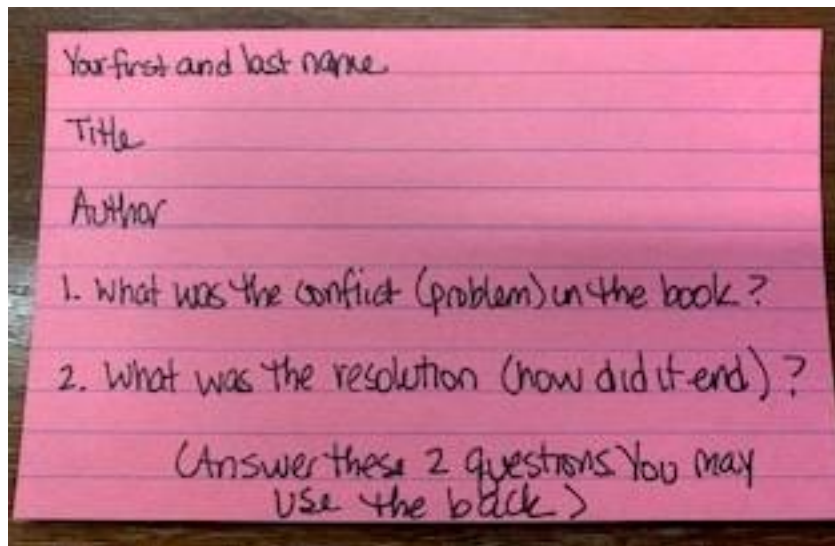 Your first and last name
Title
Author
1. What was the conflict (problem) in the book?
2. What was the resolution (how did it end)?
(Answer these 2 questions. You may
use the back)